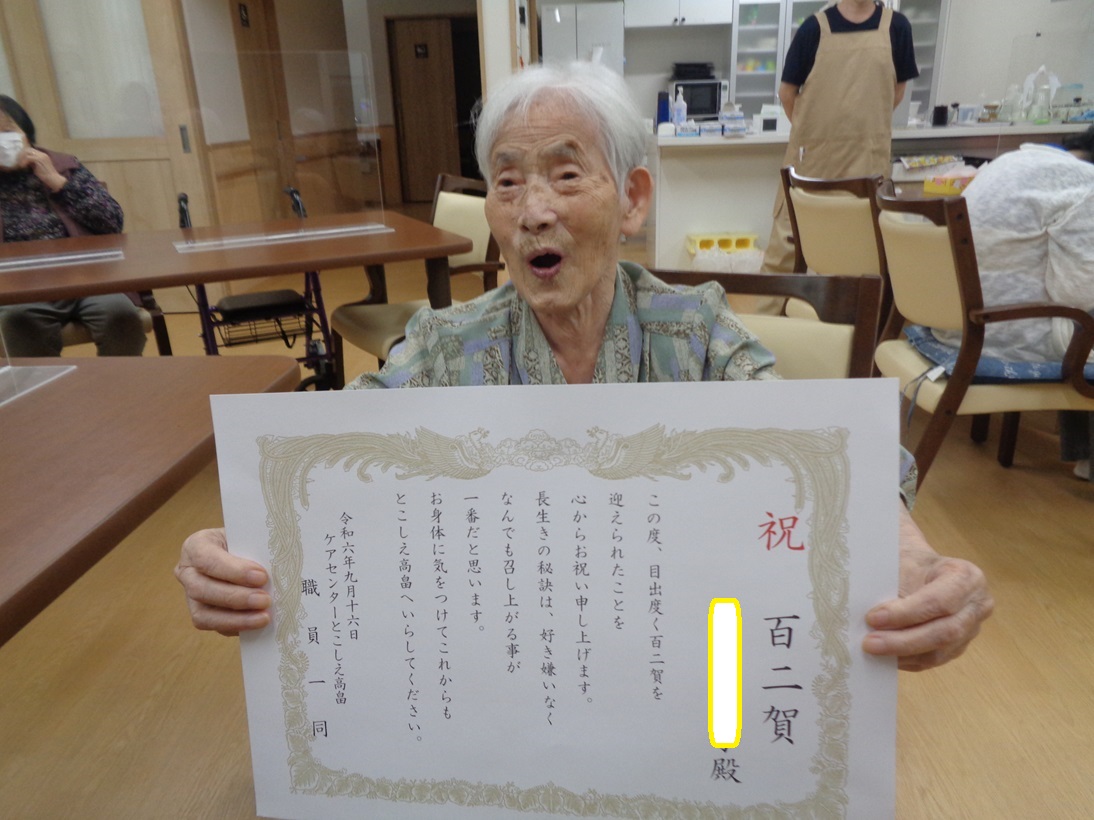 祝 百二賀
殿
この度、目出度く百二賀を
迎えられたことを
心からお祝い申し上げます。
長生きの秘訣は、好き嫌いなく
なんでも召し上がる事が
一番だと思います。
お身体に気をつけてこれからも
とこしえ高畠へいらしてください。
令和六年九月十六日
ケアセンターとこしえ高畠
職員一同